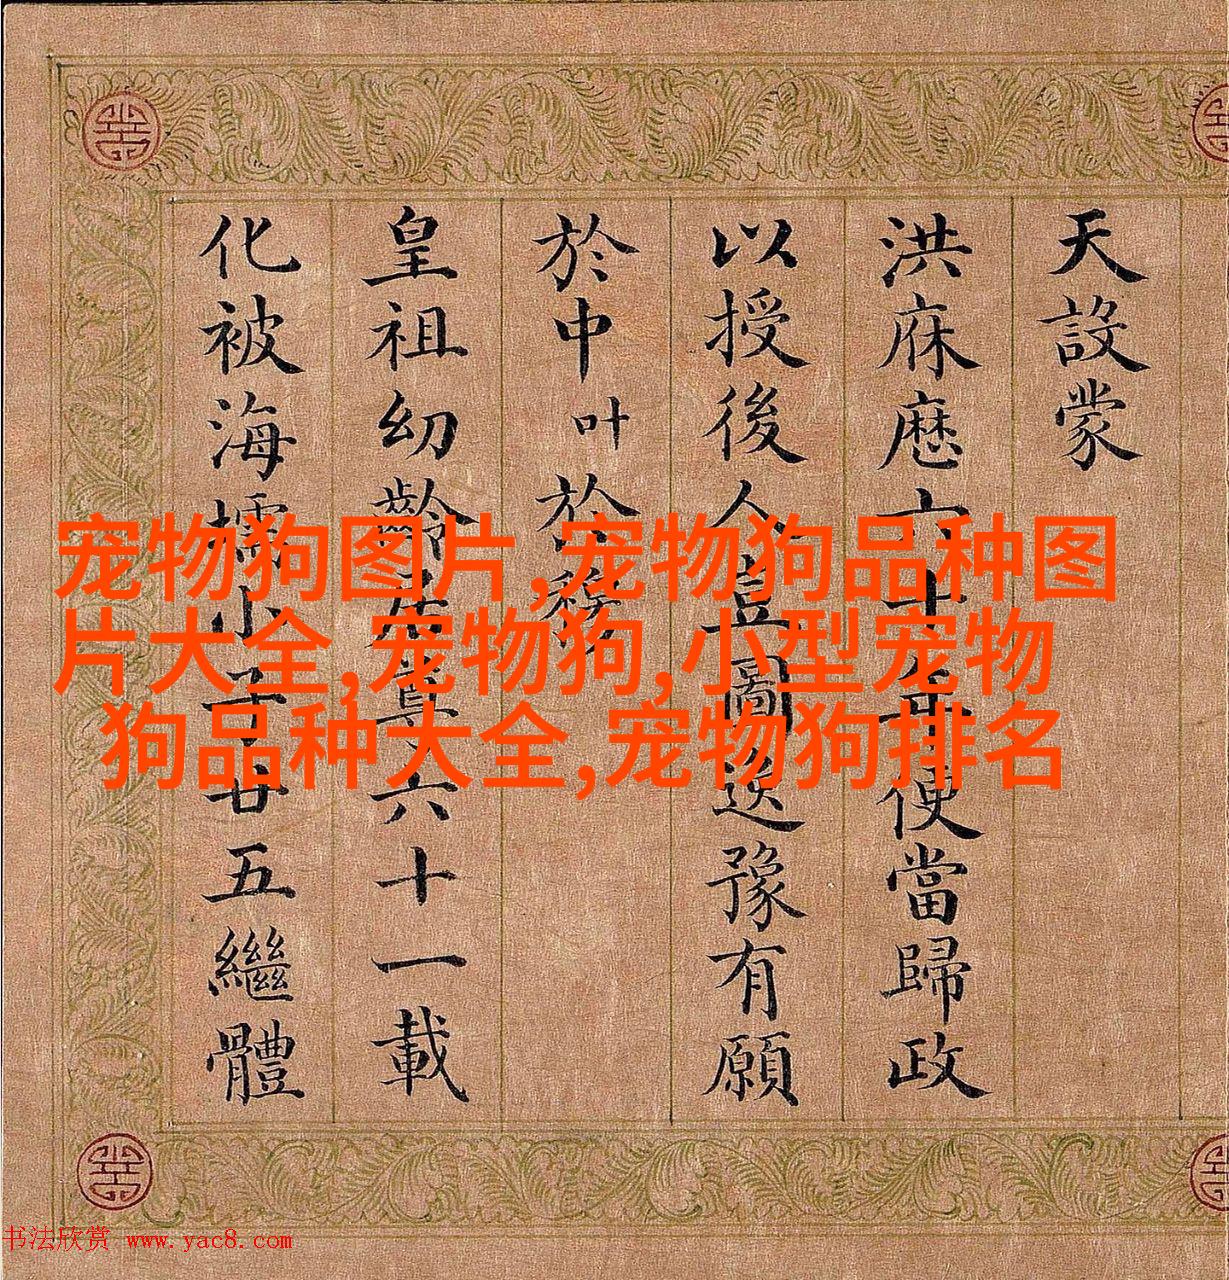 天設蒙
洪庥歷六十年便當歸政
以授後人豈圖逸豫有願
於中叶於
皇祖幼齡居尊六十一載
化被海小子廿五繼體
宠物狗图片,宠物狗品种图
片大全,宠物狗,小型宠物
狗品种大全,宠物狗排名
书法欣赏 www.yac8.com